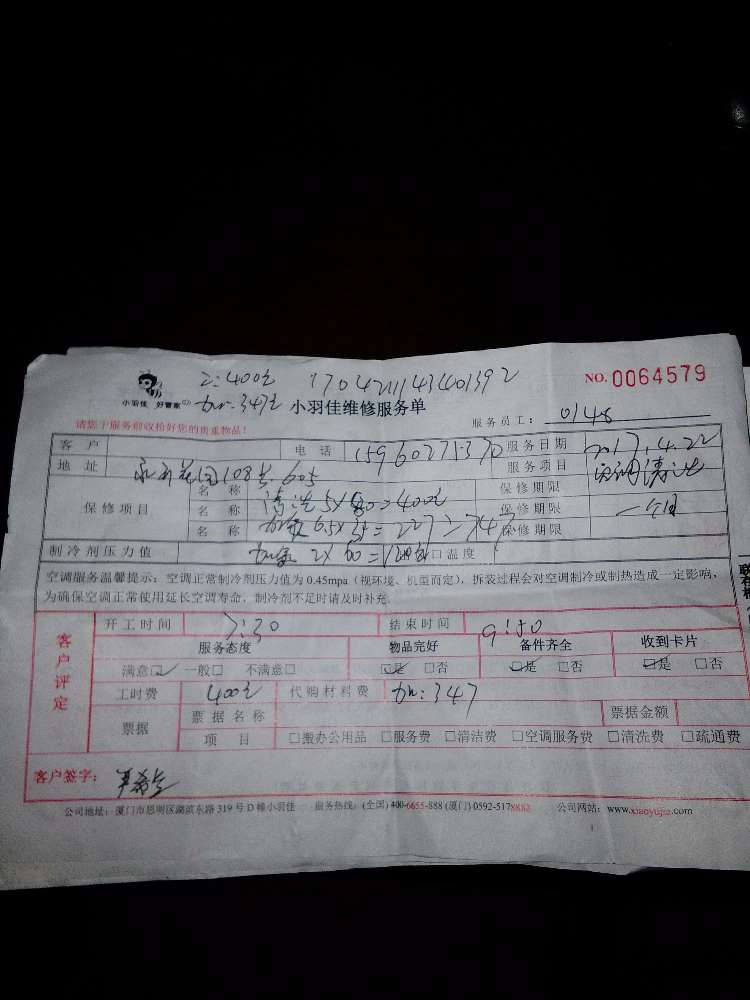 工:400元 17042111434401392
小羽佳 好管家 加:347元 小羽佳维修服务单 NO.0064579
请您于服务前收拾好您的贵重物品! 服务员工: 0148
客户 电话 15960275370 服务日期 2017.4.22
地址 花园108号605 服务项目 空调清洗
保修项目 名称 清洗5×80=400元 保修期限
名称 加氟6.5×35=227 保修期限 一个月
名称 加氟 2×60=120元 保修期限
制冷剂压力值 口温度
空调服务温馨提示:空调正常制冷剂压力值为 0.45mpa(视环境、机型而定),拆装过程会对空调制冷或制热造成一定影响,
为确保空调正常使用延长空调寿命,制冷剂不足时请及时补充.
客户评定 开工时间 7:30 结束时间 9:50
服务态度 物品完好 备件齐全 收到卡片
满意☑ 一般□ 不满意□ ☑是 □否 ☑是 □否 ☑是 □否
工时费 400元 代购材料费 加:347
票据 票据名称 票据金额
项目 □搬办公用品 □服务费 □清洁费 □空调服务费 □清洗费 □疏通费
客户签字:
公司地址:厦门市思明区湖滨东路 319 号 D 幢小羽佳 服务热线:(全国) 400-6655-888 (厦门) 0592-5178882 公司网站:www.xiaoyujia.com